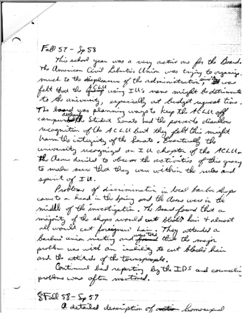 Fall 57 - Sp 58
This school year was a very active one for the Board.
The American Civil Liberties Union was trying to organize,
much to the displeasure of the administration. It was
felt that the ACLU using IU's name might be detrimental
to the university, especially at budget request time.
The board was planning ways to keep the ACLU off
campus. Student Senate had the periodic
recognition of the ACLU but they felt this might
harm the integrity of the Senate. Eventually the
university recognized an IU chapter of the ACLU.
The Deans decided to observe the activities of this group
to make sure that they were within the rules and
spirit of IU.
Problems of discrimination in local barber shops
came to a head in the spring and the Deans were in the
middle of the investigation. The Board found that a
majority of the shops would cut black's hair + almost
all would cut foreigners' hair. They attended a
barber's union meeting and found that the major
problem was with an inability to cut blacks hair
and the attitude of the townspeople.
Continued bad reporting by the IDS and
problems were often mentioned.
Fall 58 - Sp 59
A detailed description of homosexual